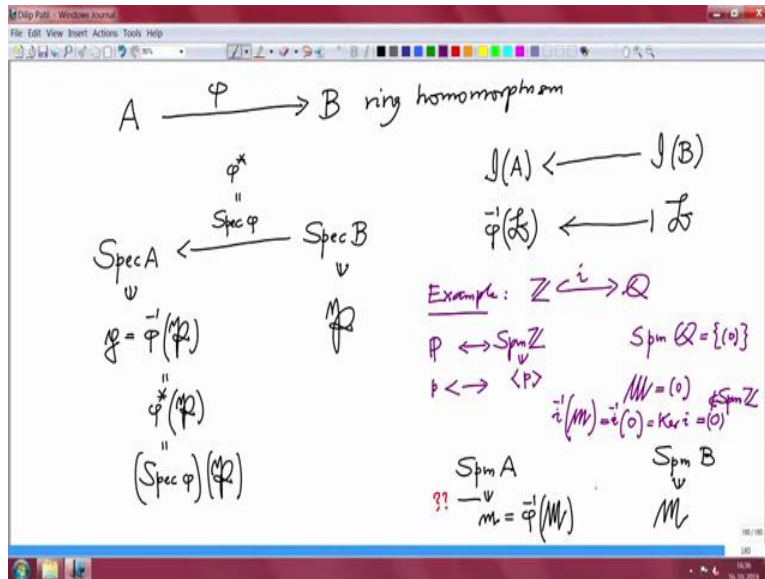 Dilip Patil - Windows Journal
File Edit View Insert Actions Tools Help
A —φ→ B ring homomorphism
φ*
=
Spec φ
Spec A ← Spec B
𝔭 = φ⁻¹(𝔓)
𝔓
=
φ*(𝔓)
=
(Spec φ)(𝔓)
I(A) ← I(B)
φ⁻¹(𝔟) ←| 𝔟
Example: ℤ ↪ⁱ ℚ
ℙ ↔ Spm ℤ
Spm ℚ = {(0)}
p ↔ <p>
𝔐 = (0)
i⁻¹(𝔐) = i⁻¹(0) = Ker i = (0) ∉ Spm ℤ
Spm A
Spm B
??
𝔪 = φ⁻¹(𝔐)
𝔐
180